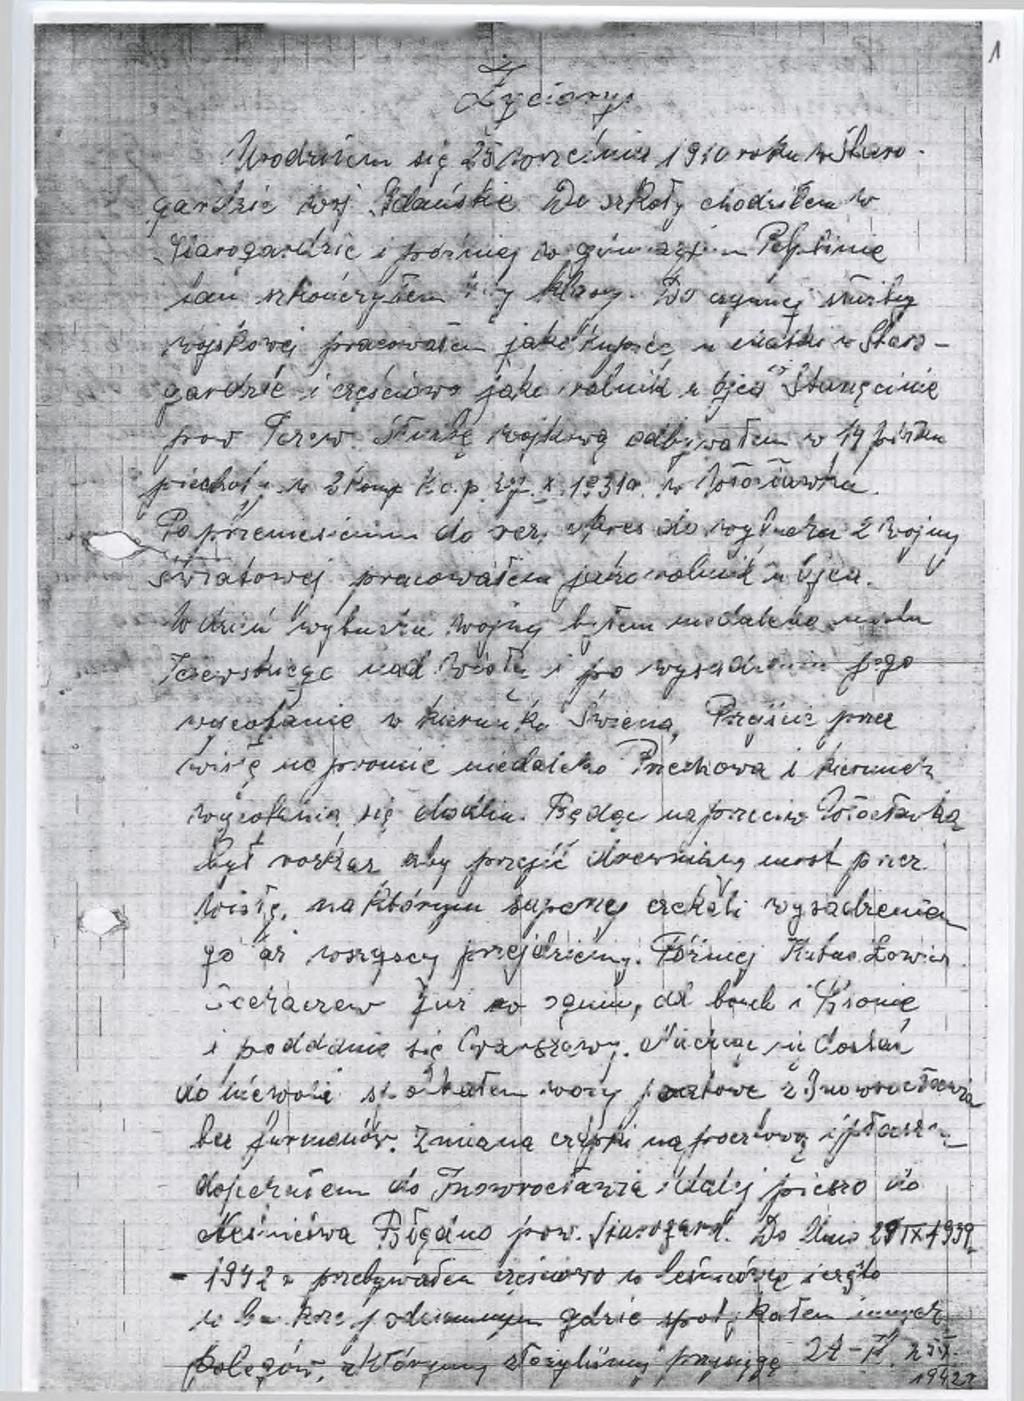 1
Życiorys
Urodziłem się 25 września 1910 roku w Staro-
gardzie woj Gdańskie. Do szkoły chodziłem w
Starogardzie i później w Pelplinie
tam szkończyłem klasy. Do czynnej służby
wojskowej pracowałem jako kupiec u matki w Staro-
gardzie i częściowo jako rolnik u ojca
pow Tczew. Służbę wojkową odbywałem w 14 pułku
piechoty w 3 komp K.o.p. w Włocławku.
Po przeniesieniu do rez. okres do wybuchu 2 wojny
światowej pracowałem jako rolnik u ojca.
W dzień wybuchu wojny byłem niedaleko mostu
Tczewskiego nad Wisłą i po wysadzeniu jego
wycofanie w kierunku Świecia, Przejście przez
Wisłę na promie niedaleko i kierunek
wycofania się Będąc naprzeciw Włocławka
był rozkaz aby przejść drewniany most przez
Wisłę, na którym saperzy czekali wysadzenia
go aż wszyscy przejdziemy. Później Kutno Łowicz
Sochaczew już w ogniu, dal borek i Błonie
i poddanie się Warszawy. Niechcąc się dostać
do niewoli spotkałem wozy pocztowe z Inowrocławia
bez furmanów. Zmiana czapki na pocztową i płaszcz
dojechałem do Inowrocławia i dalej pieszo do
Leśnictwa Błędno pow. Starogard. Do dnia 29 IX 1939
- 1942 r przebywałem częściowo w leśniczówce i często
w bunkrze podziemnym gdzie spotykałem innych
kolegów, z którymi złożyliśmy przysięgę
1942 r